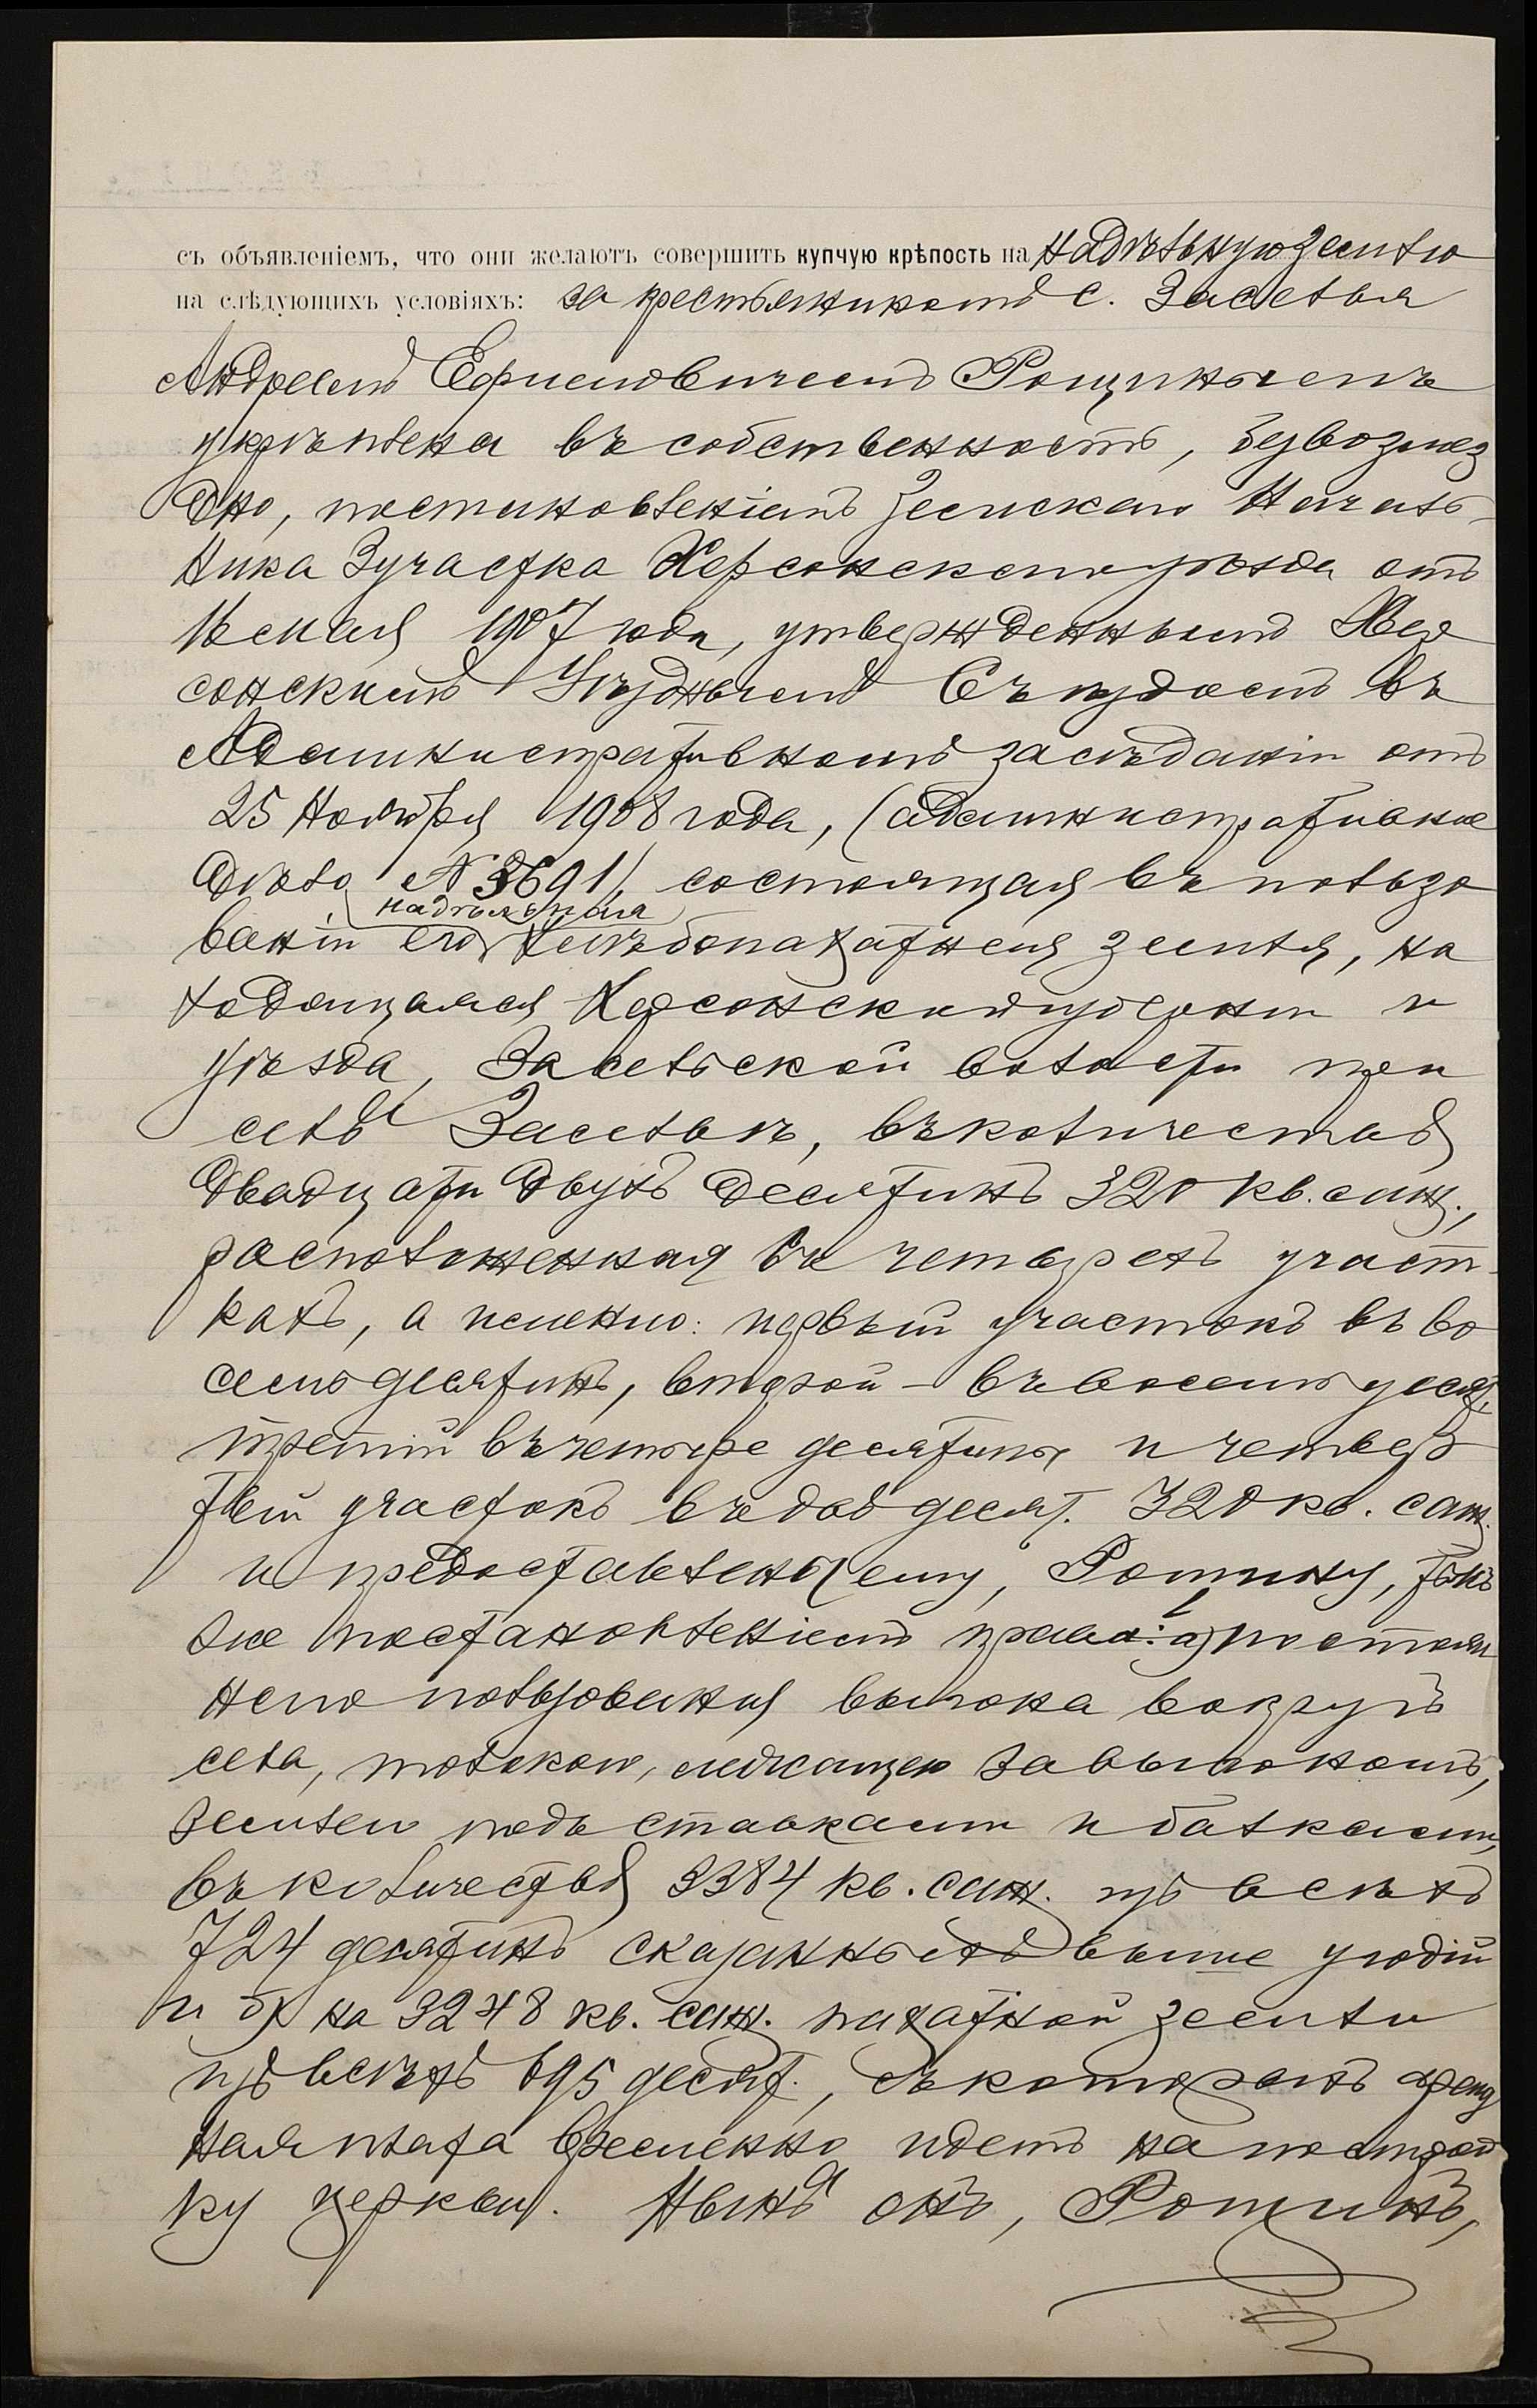 съ объявленіемъ, что они желаютъ совершить купчую крѣпость на надѣльную землю
на слѣдующихъ условіяхъ: за крестьяниномъ с. Заселья
Андреемъ Ефимовичемъ Рощинымъ
укрѣплена въ собственность, безвозмез
дно, постановленіемъ Земскаго Началь-
ника 3 участка Херсонскаго уѣзда отъ
мая 1907 года, утвержденнымъ Хер
сонскимъ Уѣзднымъ Съѣздомъ въ
Административномъ засѣданіи отъ
25 Ноября 1908 года, (административное
дѣло № 3691), состоящая въ пользо
надѣльная
ваніи его хлѣбопахатная земля, на
ходящаяся Херсонской губерніи и
уѣзда, Засельской волости при
селѣ Засельѣ, въ количествѣ
двадцати двухъ десятинъ 320 кв. саж.,
расположенная въ четырехъ участ-
кахъ, а именно: первый участокъ въ во
семь десятинъ, второй - въ восемь десят.,
третій въ четыре десятины и четвер
тый участокъ въ двѣ десят. 320 кв. саж.
и предоставлены ему, Рощину, тѣмъ
же постановленіемъ права: а) постоян
наго пользованія выгона вокругъ
села, толокою, лежащею за выгономъ,
землею подъ ставками и балками,
въ количествѣ 3384 кв. саж. изъ всѣхъ
724 десятинъ сказанныхъ выше угодій
и б) на 3248 кв. саж. пахатной земли
изъ всѣхъ 695 десят., съ которыхъ аренд
ная плата временно идетъ на построй
ку церкви. Нынѣ онъ, Рощинъ,